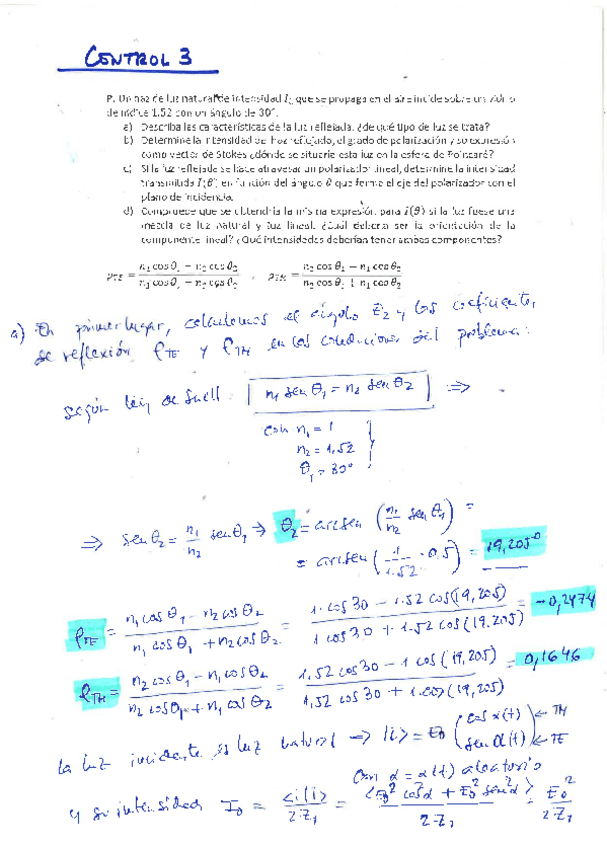 CONTROL 3
P. Un haz de luz natural de intensidad I₀ que se propaga en el aire incide sobre un vidrio
de índice 1.52 con un ángulo de 30°.
a) Describa las características de la luz reflejada. ¿de qué tipo de luz se trata?
b) Determine la intensidad del haz reflejado, el grado de polarización y su expresión
como vector de Stokes ¿dónde se situaría esta luz en la esfera de Poincaré?
c) Si la luz reflejada se hace atravesar un polarizador lineal, determine la intensidad
transmitida I(θ) en función del ángulo θ que forme el eje del polarizador con el
plano de incidencia.
d) Compruebe que se obtendría la misma expresión para I(θ) si la luz fuese una
mezcla de luz natural y luz lineal. ¿Cuál debería ser la orientación de la
componente lineal? ¿Qué intensidades deberían tener ambas componentes?
ρTE = (n₁ cos θ₁ − n₂ cos θ₂) / (n₁ cos θ₁ + n₂ cos θ₂) , ρTM = (n₂ cos θ₁ − n₁ cos θ₂) / (n₂ cos θ₁ + n₁ cos θ₂)
a) En primer lugar, calculamos el ángulo θ₂ y los coeficientes
de reflexión ρTE y ρTM en las condiciones del problema:
según ley de Snell: n₁ sen θ₁ = n₂ sen θ₂ ⇒
con n₁ = 1
n₂ = 1.52
θ₁ = 30°
⇒ sen θ₂ = n₁/n₂ sen θ₁ → θ₂ = arcsen (n₁/n₂ sen θ₁) =
= arcsen (1/1.52 · 0,5) = 19,205°
ρTE = (n₁ cos θ₁ − n₂ cos θ₂) / (n₁ cos θ₁ + n₂ cos θ₂) = (1·cos 30 − 1.52 cos(19,205)) / (1 cos 30 + 1.52 cos(19.205)) = −0,2474
ρTM = (n₂ cos θ₁ − n₁ cos θ₂) / (n₂ cos θ₁ + n₁ cos θ₂) = (1,52 cos 30 − 1 cos(19,205)) / (1,52 cos 30 + 1·cos(19,205)) = 0,1646
La luz incidente es luz natural → |i> = E₀ (cos α(t) ← TM
sen α(t)) ← TE
con α = α(t) aleatorio
y su intensidad I₀ = <i|i> / 2Z₁ = <E₀² cos² α + E₀² sen² α> / 2Z₁ = E₀² / 2Z₁